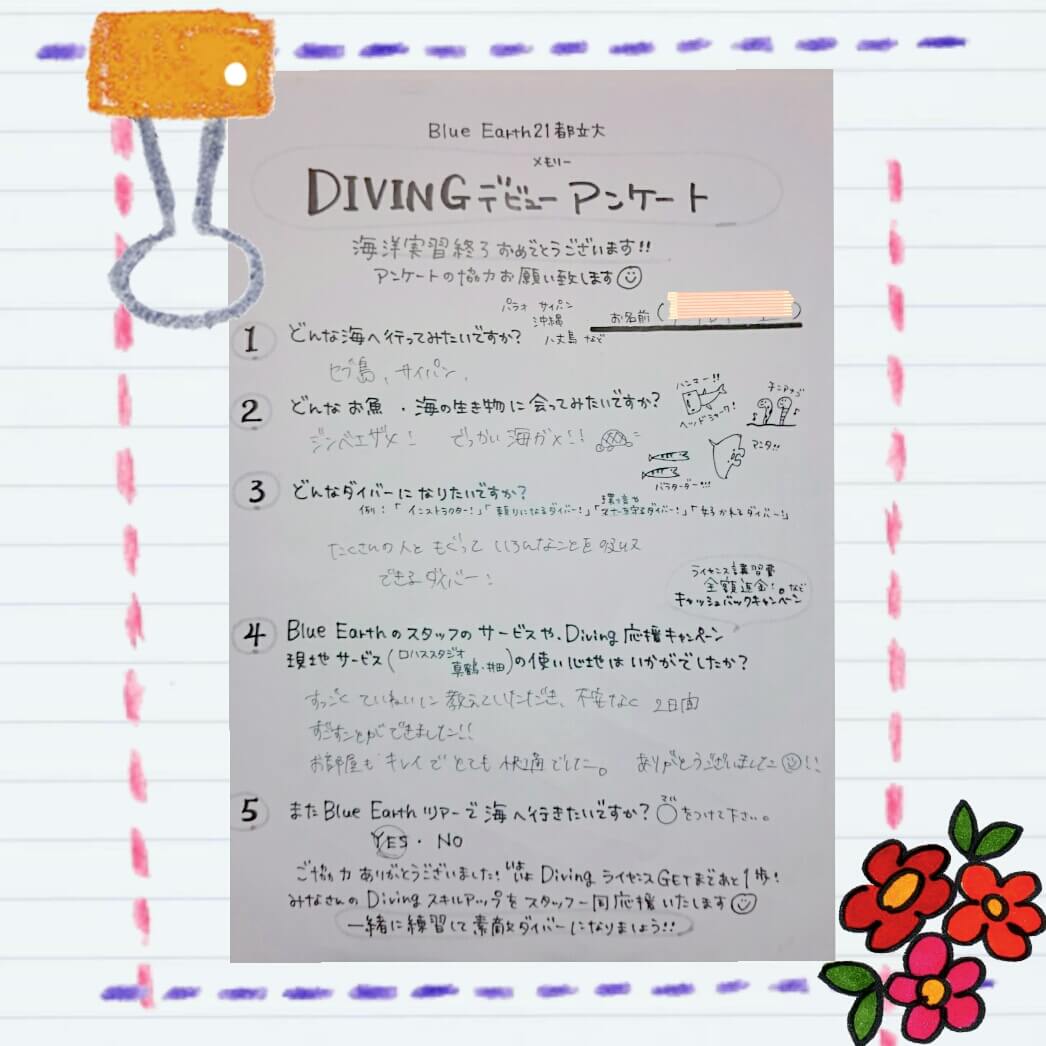 Blue Earth21都立大
メモリー
DIVINGデビューアンケート
海洋実習終了おめでとうございます!!
アンケートの協力お願い致します
パラオ サイパン
沖縄
八丈島 など
お名前(
)
1 どんな海へ行ってみたいですか?
セブ島、サイパン、
2 どんなお魚・海の生き物に会ってみたいですか?
ハンマー!!
ヘッドシャーク!
チンアナゴ
マンタ!!
バラクーダー!!!
ジンベエザメ! でっかい海ガメ!!
3 どんなダイバーになりたいですか?
例:「インストラクター!」「頼りになるダイバー!」「環境や
を守るダイバー!」「好かれるダイバー!」
たくさんの人ともぐっていろんなことを吸収
できるダイバー!
ライセンス講習費
全額返金!。など
キャッシュバックキャンペーン
4 Blue Earthのスタッフのサービスや、Diving応援キャンペーン
現地サービス(ロハススタジオ
真鶴・井田)の使い心地はいかがでしたか?
すっごくていねいに教えていただき、不安なく2日間
すごすことができました!!
お部屋もキレイでとても快適でした。 ありがとうございました!!
5 またBlue Earthツアーで海へ行きたいですか?○をつけて下さい。
マル
YES・NO
ご協力ありがとうございました!いよいよDivingライセンスGETまであと1歩!
みなさんのDivingスキルアップをスタッフ一同応援いたします
一緒に練習して素敵ダイバーになりましょう!!